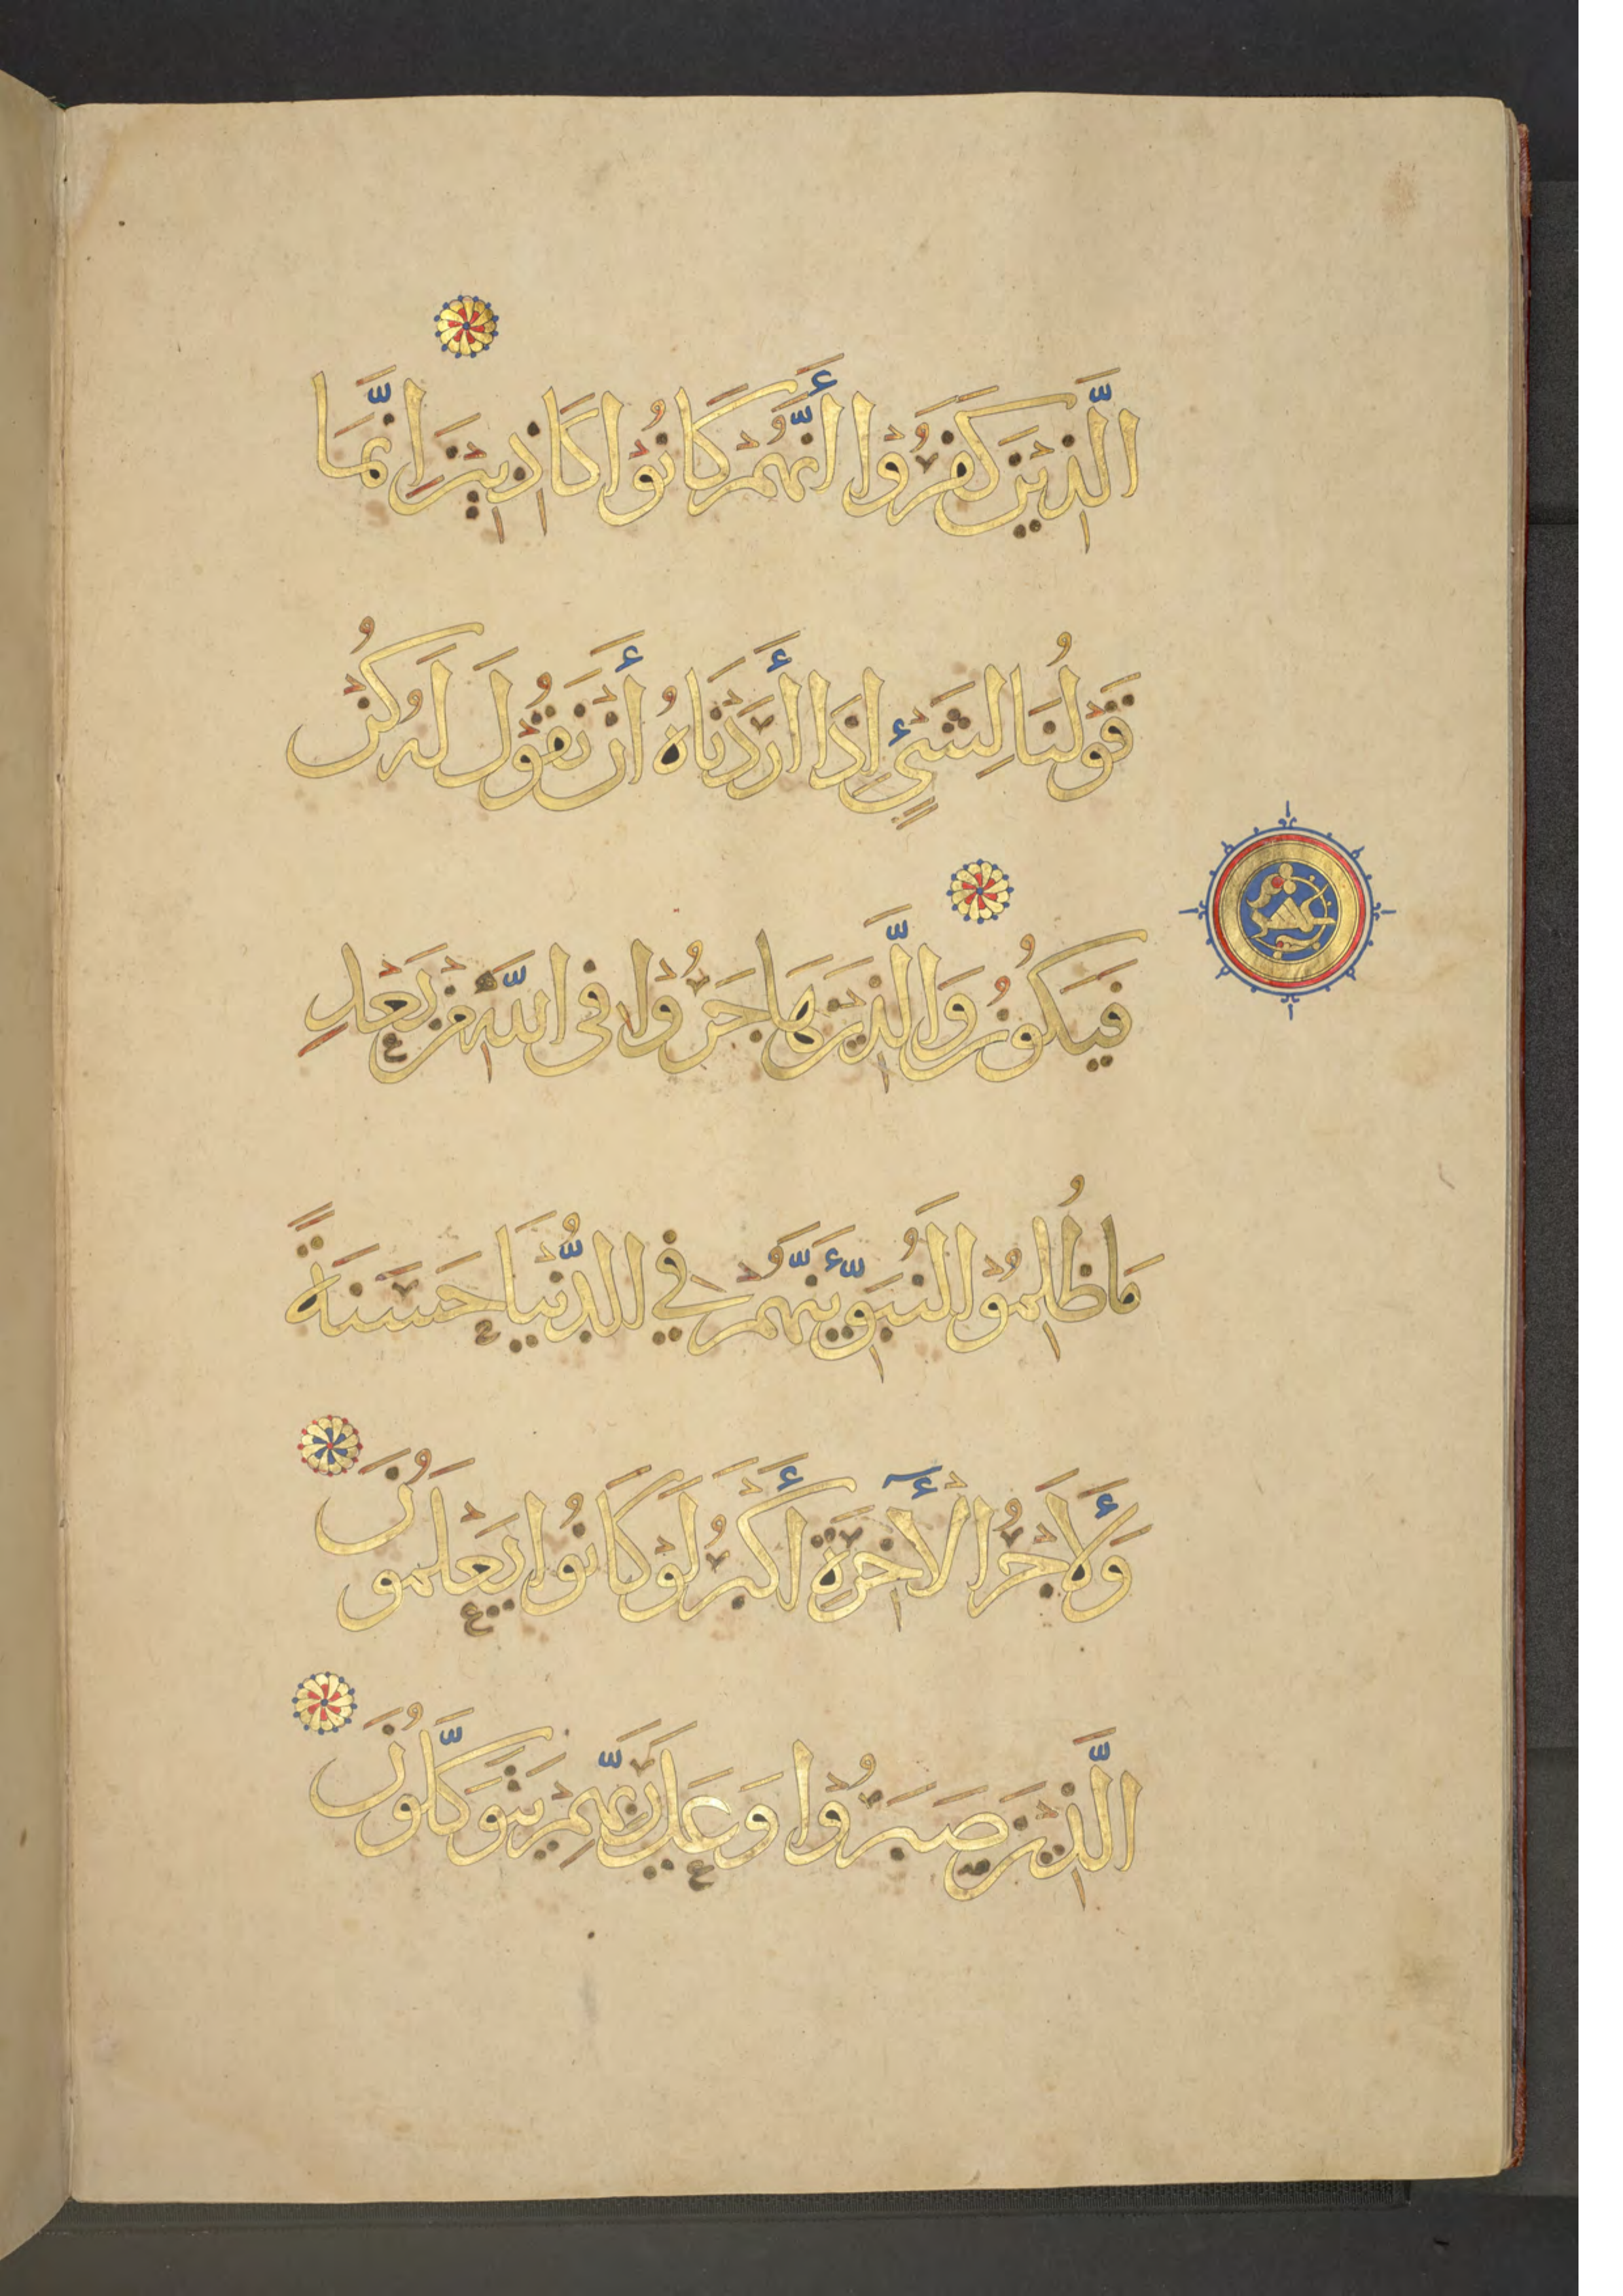 الَّذِينَ كَفَرُوا أَنَّهُمْ كَانُوا كَاذِبِينَ إِنَّمَا
قَوْلُنَا لِشَيْءٍ إِذَا أَرَدْنَاهُ أَنْ نَقُولَ لَهُ كُنْ
فَيَكُونُ وَالَّذِينَ هَاجَرُوا فِي اللَّهِ مِنْ بَعْدِ
مَا ظُلِمُوا لَنُبَوِّئَنَّهُمْ فِي الدُّنْيَا حَسَنَةً
وَلَأَجْرُ الْآخِرَةِ أَكْبَرُ لَوْ كَانُوا يَعْلَمُونَ
الَّذِينَ صَبَرُوا وَعَلَى رَبِّهِمْ يَتَوَكَّلُونَ